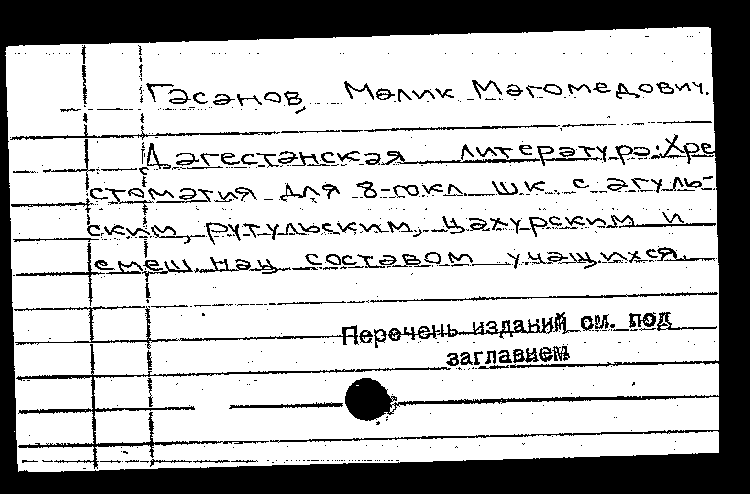 Гасанов, Малик Магомедович.
Дагестанская литература: Хре
стоматия для 8-гокл. шк. с агуль-
ским, рутульским, цахурским и
смеш. нац. составом учащихся.
Перечень изданий см. под
заглавием